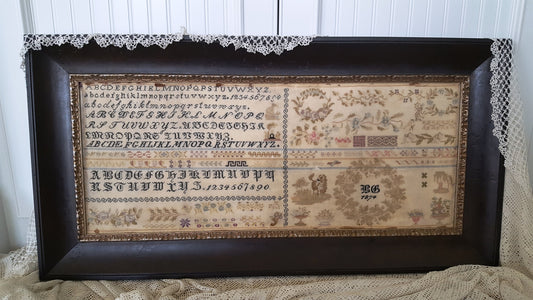 ABCDEFGHIKLMNOPQRSTUVWXYZ.
abcdefghiklmnopqrstuvwxyz.1234567890
abcdefghiklmnopqrstuvwxyz.
ABCDEFGHIKLMNOPQ
RSTUVWXYZ.ABCDEFGHIK
LMNOPQRSTUVWXYZ.
ABCDEFGHIKLMNOPQRSTUVWXYZ.
ABCDEFGHIKLMNOPQ
RSTUVWXYZ.1234567890
BG
1874